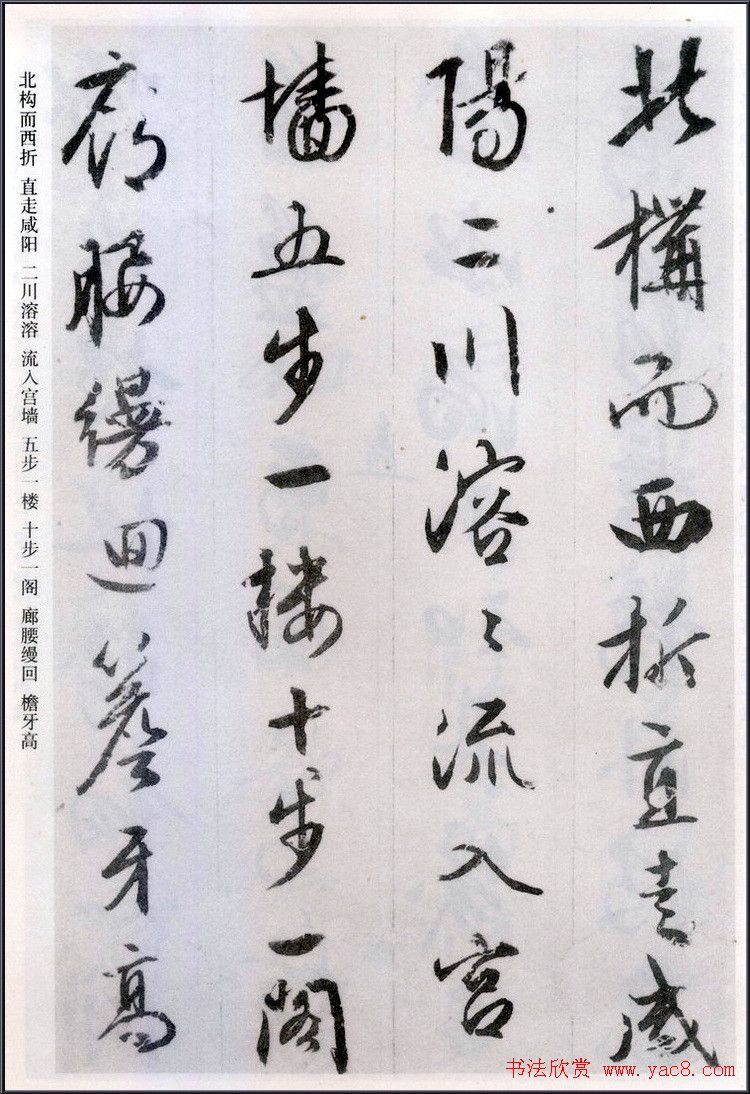 北構而西折直走咸
陽二川溶〻流入宮
墻五步一楼十步一閣
廊腰縵迴簷牙高
北构而西折 直走咸阳 二川溶溶 流入宫墙 五步一楼 十步一阁 廊腰缦回 檐牙高
书法欣赏 www.yac8.com